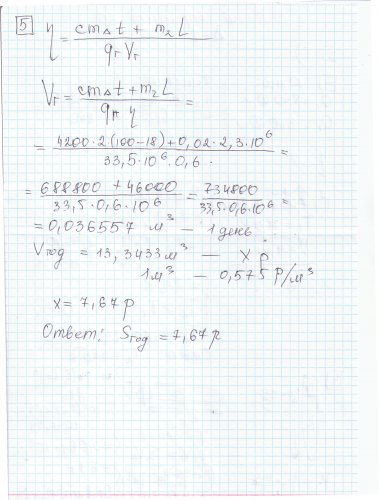 5 η = (cmΔt + m₂L) / (qг Vг)
Vг = (cmΔt + m₂L) / (qг η) =
= (4200·2(100-18) + 0,02·2,3·10⁶) / (33,5·10⁶·0,6) =
= (688800 + 46000) / (33,5·0,6·10⁶) = 734800 / (33,5·0,6·10⁶) =
= 0,036557 м³ — 1 день
Vгод = 13,3433 м³ — х р
1м³ — 0,575 р/м³
х = 7,67 р
Ответ: Sгод = 7,67 р